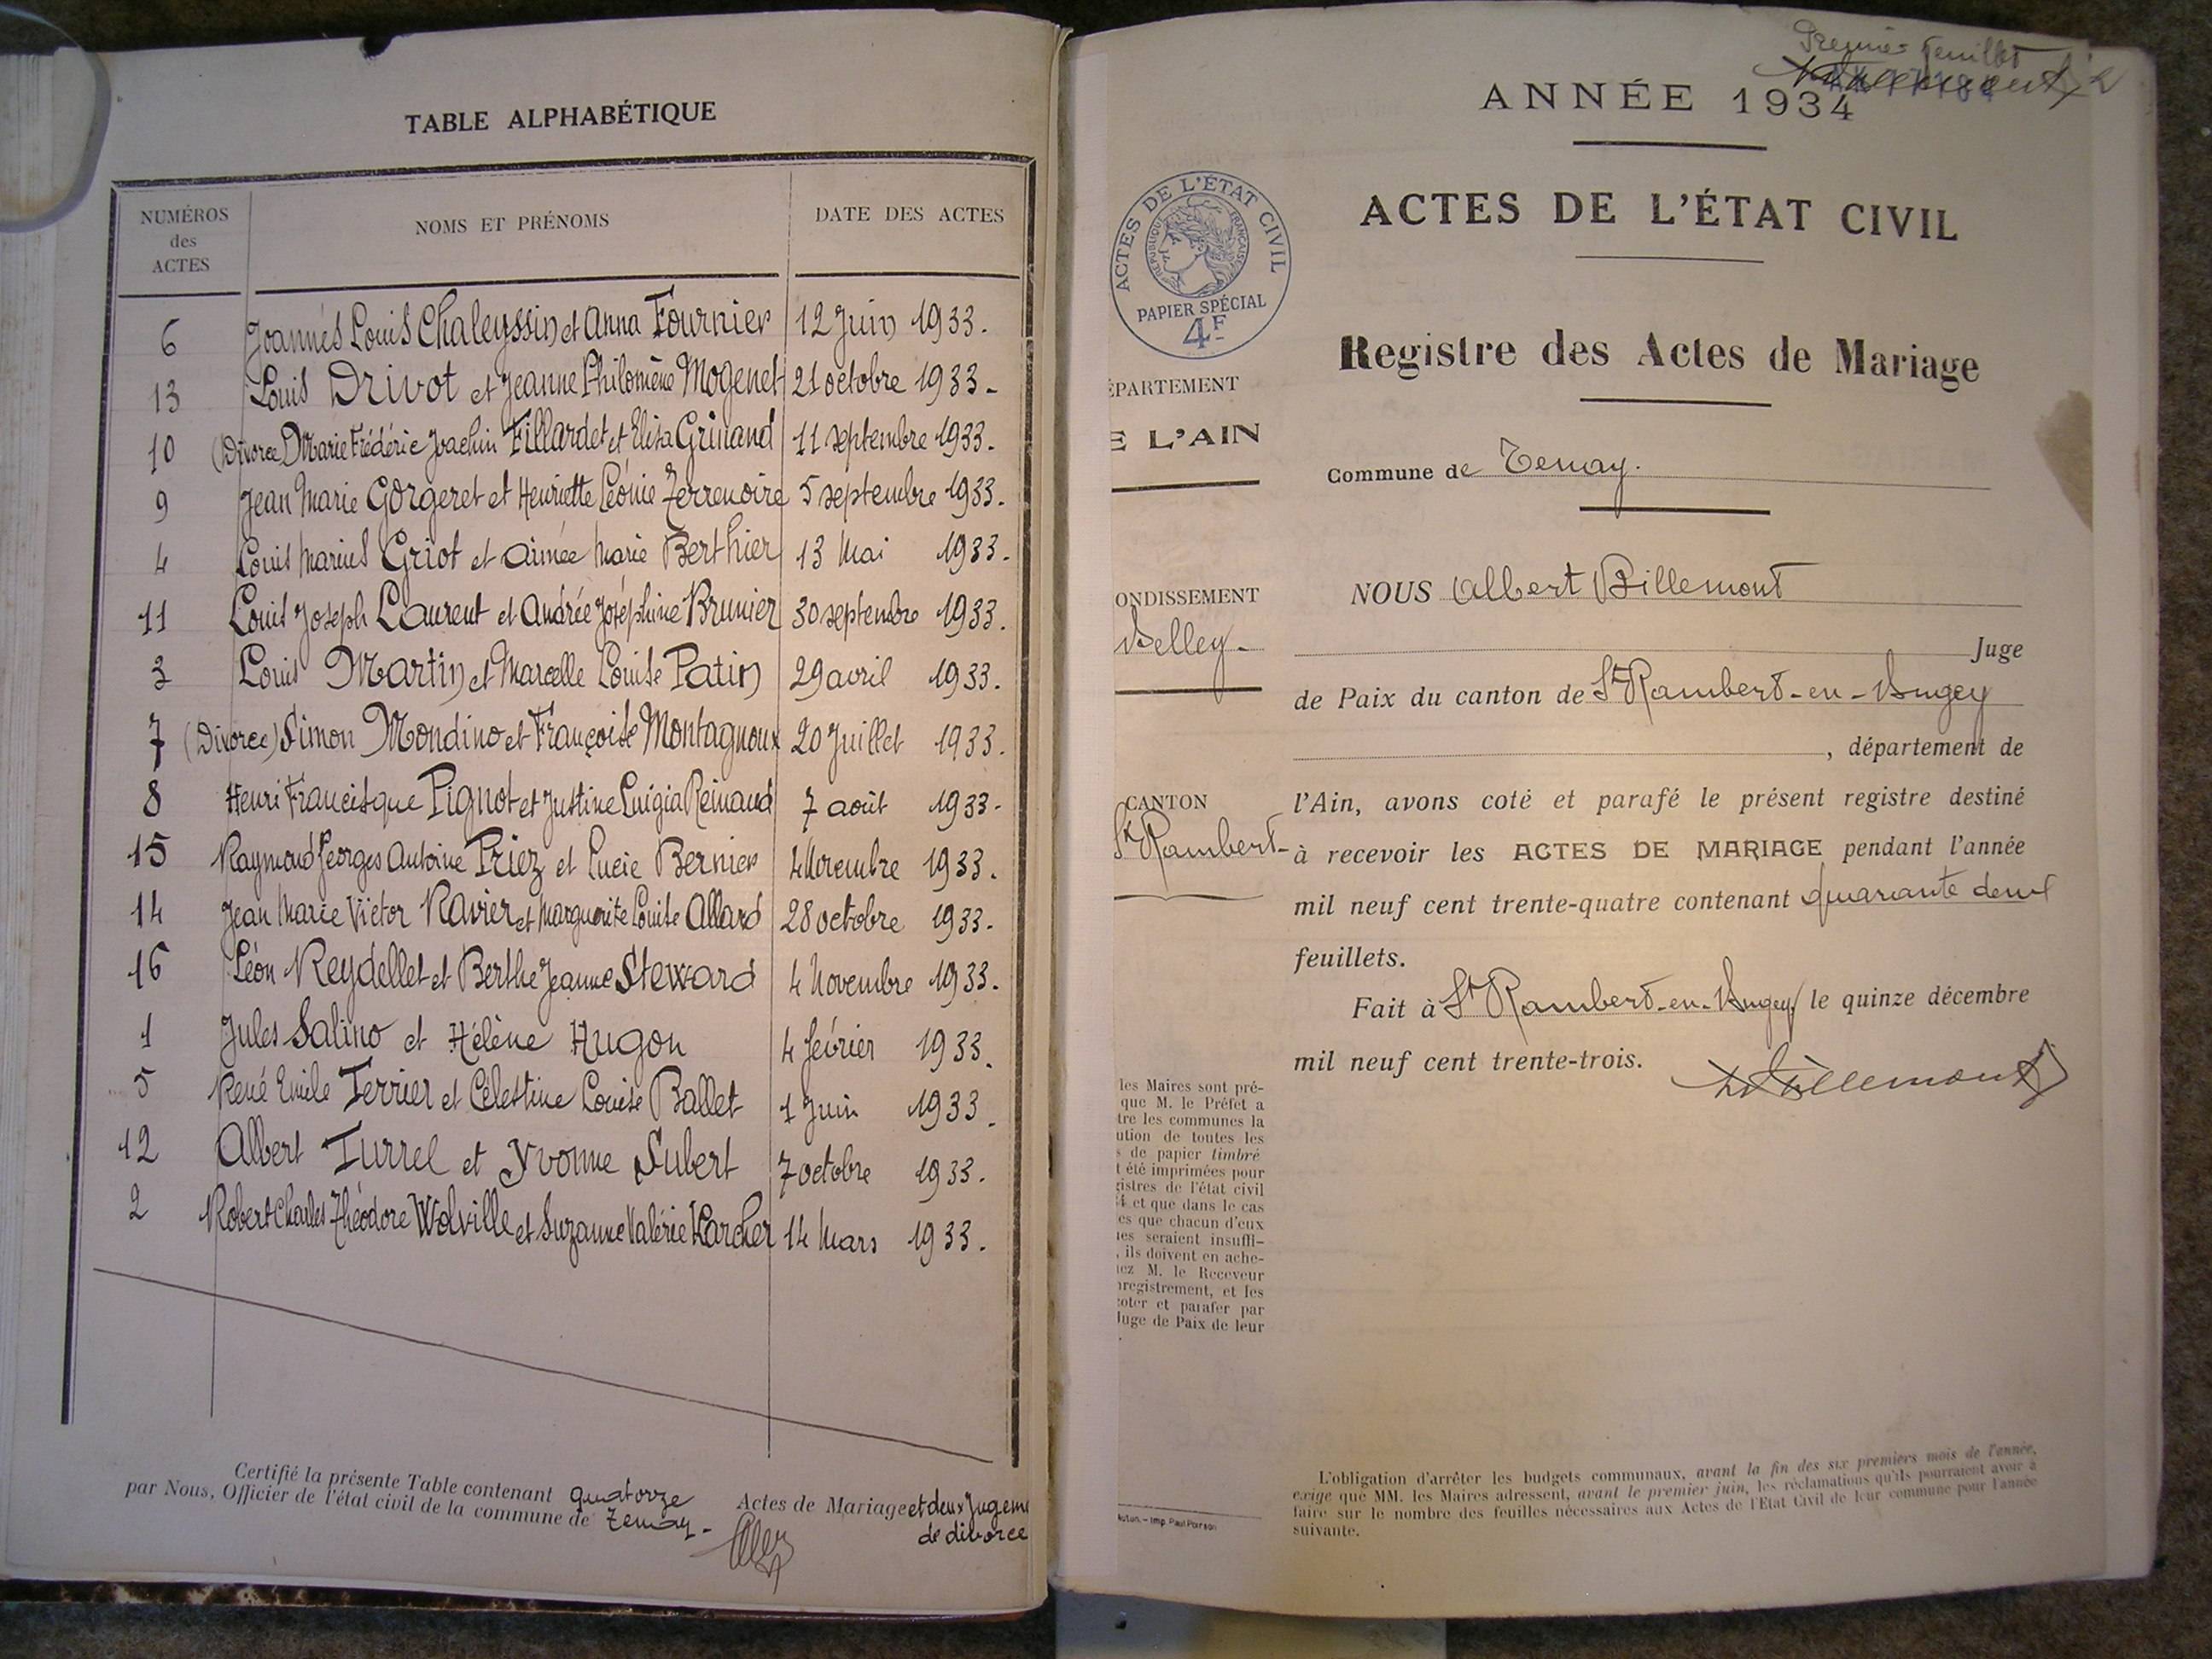 TABLE ALPHABÉTIQUE
NUMÉROS des ACTES
NOMS ET PRÉNOMS
DATE DES ACTES
6 Joannès Louis Chaleyssin et Anna Fournier 12 Juin 1933.
13 Louis Drivot et Jeanne Philomène Mogenet 21 octobre 1933-
10 (Divorce) Marie Frédéric Joachin Fillardet et Elisa Grinand 11 septembre 1933.
9 Jean Marie Gorgeret et Henriette Léonie Terrenoire 5 septembre 1933.
4 Louis Marius Griot et Aimée Marie Berthier 13 Mai 1933.
11 Louis Joseph Laurent et Andrée Joséphine Brunier 30 septembre 1933.
3 Louis Martin et Marcelle Louise Patin 29 avril 1933.
7 (Divorce) Simon Mondino et Françoise Montagnoux 20 Juillet 1933.
8 Henri Francisque Pignot et Justine Luigia Reinaud 7 août 1933-
15 Raymond Georges Antoine Priez et Lucie Bernier 4 Novembre 1933.
14 Jean Marie Victor Ravier et Marguerite Louise Allard 28 octobre 1933.
16 Léon Reydellet et Berthe Jeanne Steward 4 Novembre 1933.
1 Jules Salino et Hélène Hugon 4 février 1933.
5 René Emile Terrier et Célestine Louise Ballet 1 Juin 1933.
12 Albert Turrel et Yvonne Subert 7 octobre 1933.
2 Robert Charles Théodore Wolville et Suzanne Valérie Karcher 14 Mars 1933.
Certifié la présente Table contenant quatorze Actes de Mariage et deux Jugem
par Nous, Officier de l'état civil de la commune de Tenay- de divorce
Premier feuillet
ANNÉE 1934
ACTES DE L'ÉTAT CIVIL
ACTES DE L'ÉTAT CIVIL
RÉPUBLIQUE FRANÇAISE
PAPIER SPÉCIAL
4F
Registre des Actes de Mariage
ÉPARTEMENT
E L'AIN
Commune de Tenay.
ONDISSEMENT
Belley-
CANTON
St Rambert-
NOUS Albert Billemont
Juge
de Paix du canton de St Rambert-en-Bugey
, département de
l'Ain, avons coté et parafé le présent registre destiné
à recevoir les ACTES DE MARIAGE pendant l'année
mil neuf cent trente-quatre contenant quarante deux
feuillets.
Fait à St Rambert-en-Bugey le quinze décembre
mil neuf cent trente-trois.
Billemont
les Maires sont pré-
que M. le Préfet a
tre les communes la
ution de toutes les
s de papier timbré
t été imprimées pour
gistres de l'état civil
4 et que dans le cas
es que chacun d'eux
ues seraient insuffi-
, ils doivent en ache-
hez M. le Receveur
nregistrement, et les
coter et parafer par
Juge de Paix de leur
Autun. - Imp. Paul Poirson
L'obligation d'arrêter les budgets communaux, avant la fin des six premiers mois de l'année,
exige que MM. les Maires adressent, avant le premier juin, les réclamations qu'ils pourraient avoir à
faire sur le nombre des feuilles nécessaires aux Actes de l'Etat Civil de leur commune pour l'année
suivante.